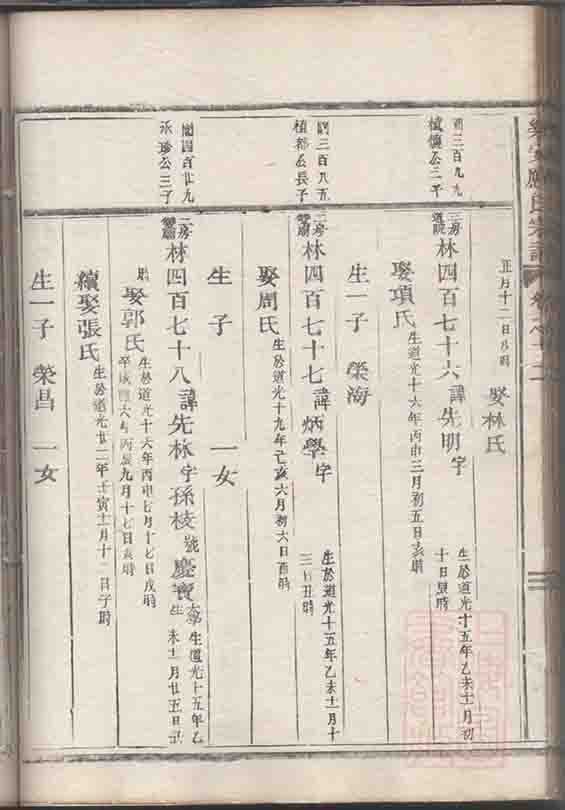 正月十二日辰時 娶林氏
閏三百九九
植懷公三子
三房道院 林四百七十六 諱先明字 生於道光十五年乙未十一月初十日
娶項氏 生道光十六年丙申三月初五日亥時
生一子 榮海
閏三百八五
植都公長子
二房雙廟 林四百七十七 諱炳學字 生於道光十五年乙未十一月十三日丑時
娶周氏 生於道光十九年己亥六月初六日酉時
生 子 一女
閏四百廿九
永珍公三子
二房雙廟 林四百七十八 諱先林字孫枝號慶寶 太學生 生道光十五年乙未十一月廿五日
娶郭氏 生於道光十六年丙申七月十七日戌時
卒咸豐六年丙辰九月十七日亥時
續娶張氏 生於道光廿二年壬寅十一月十二日子時
生一子 榮昌 一女